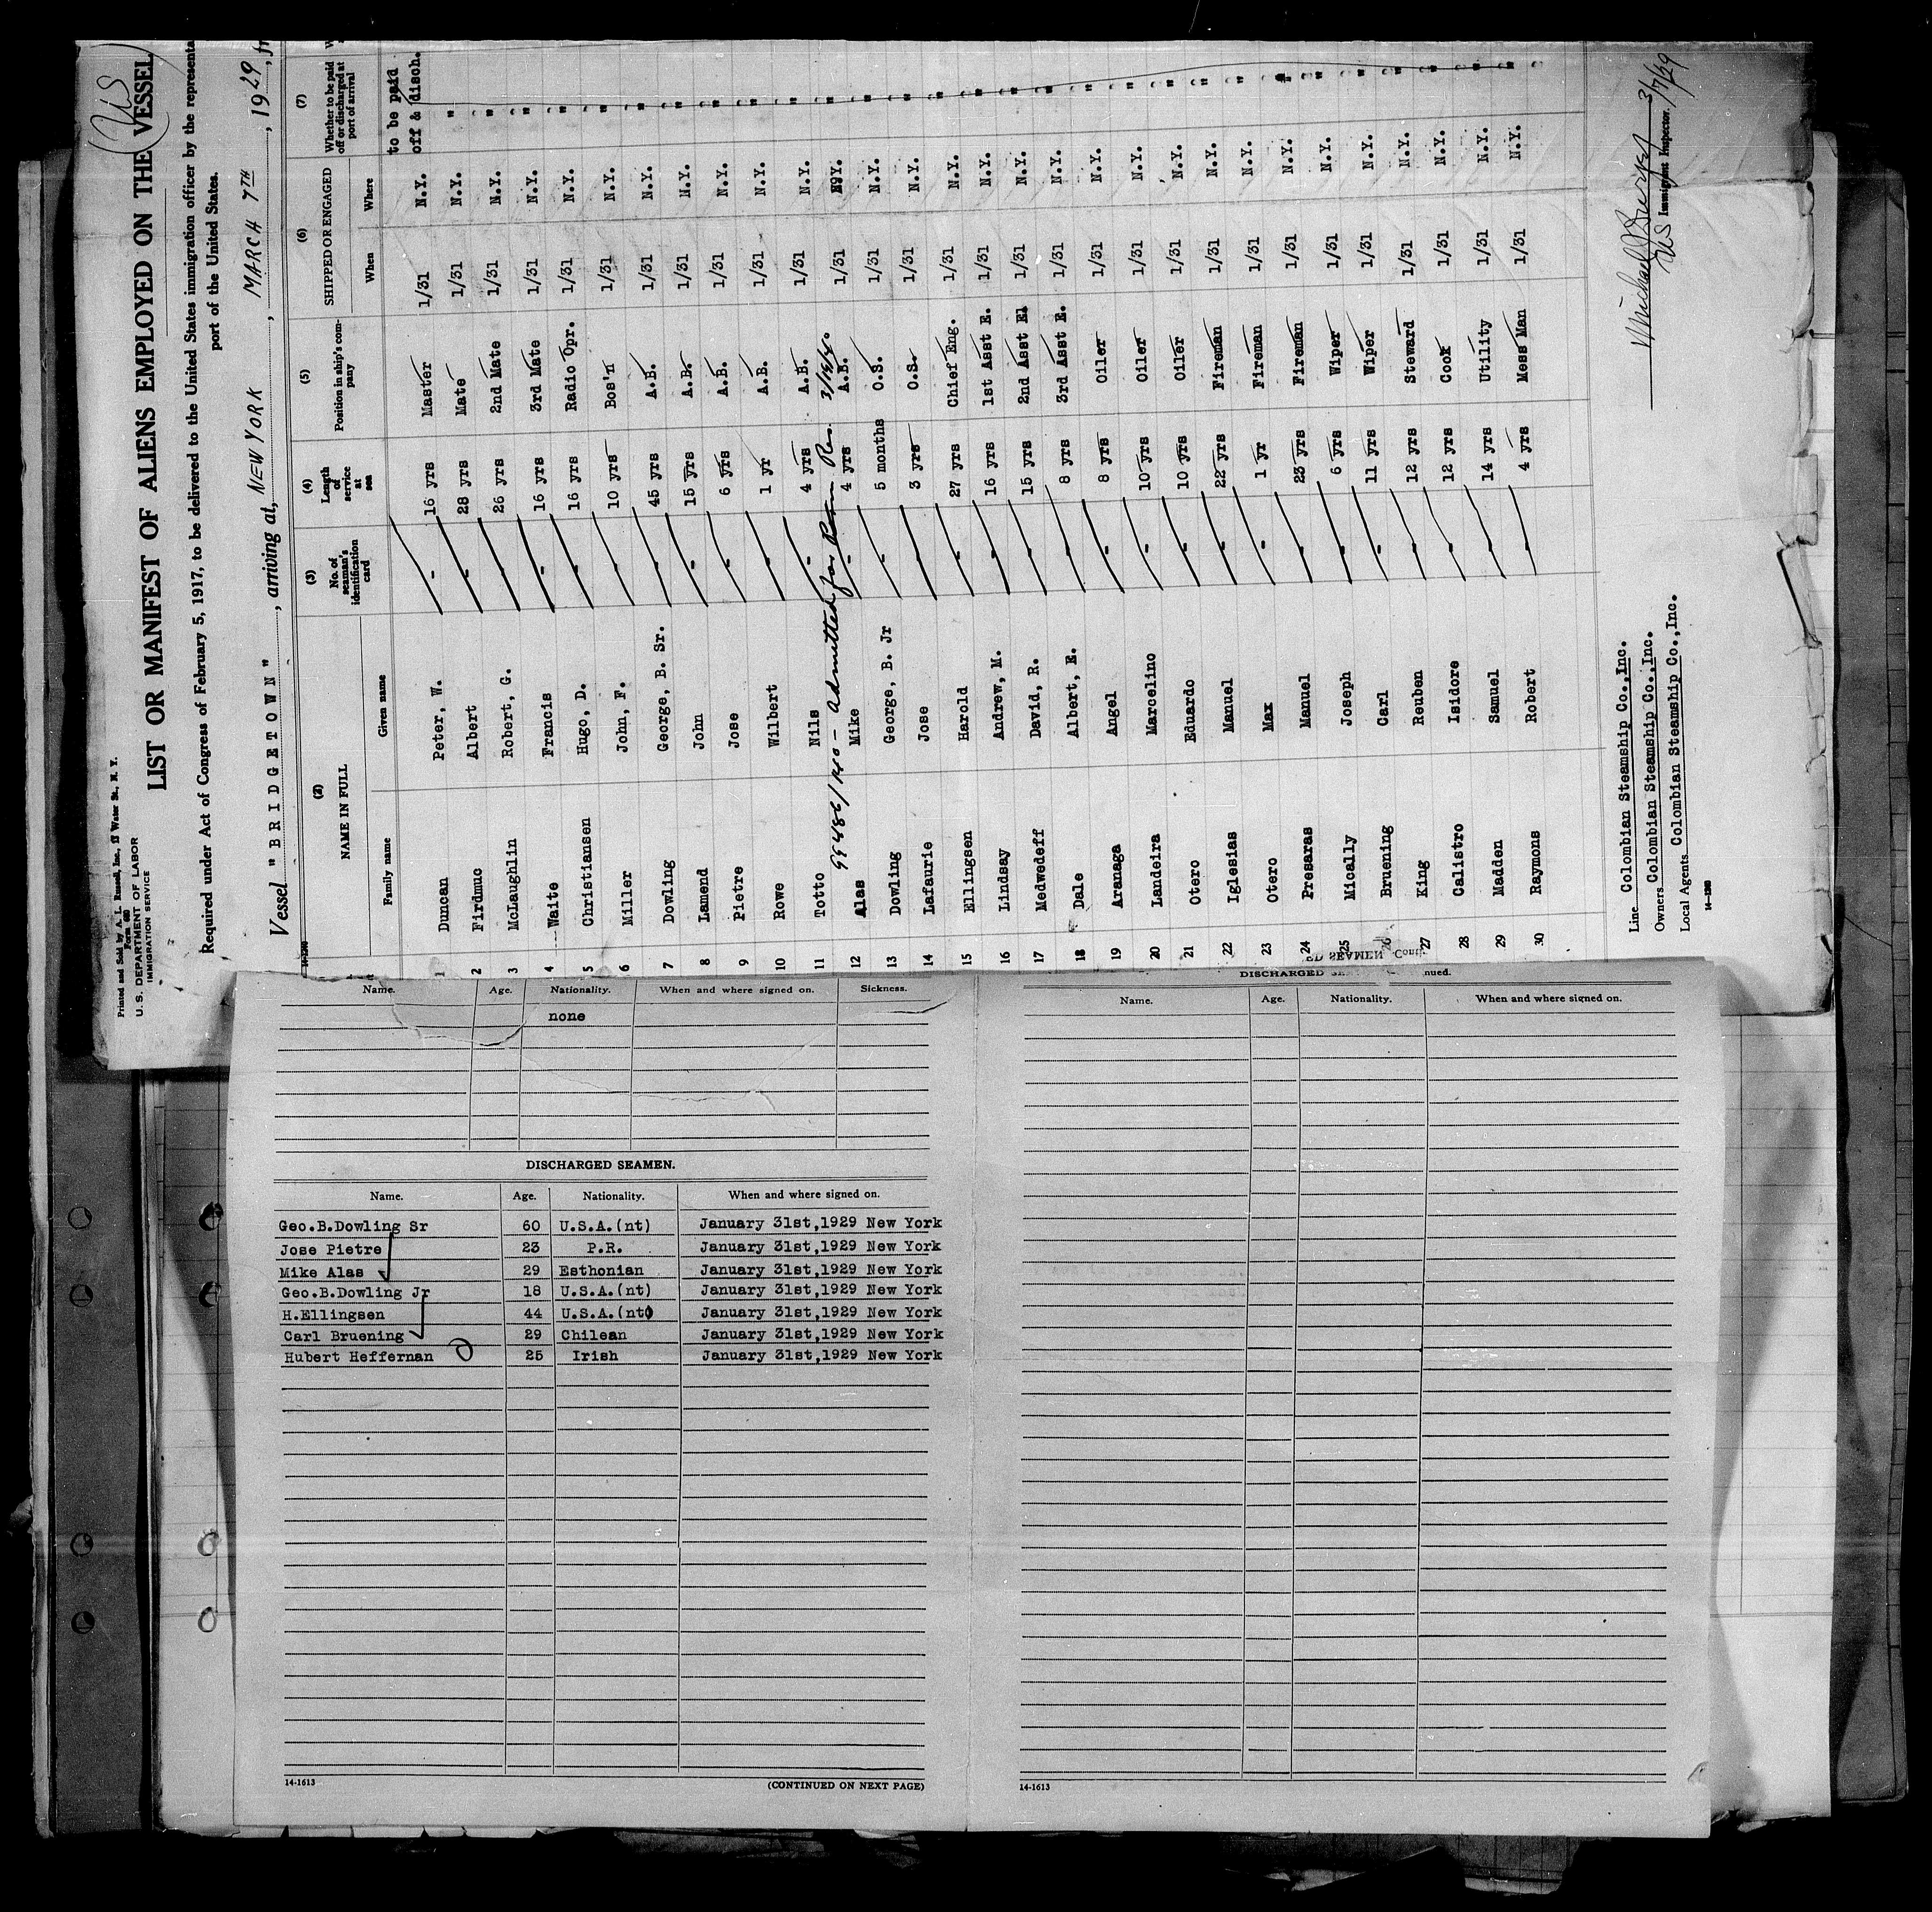 US
Printed and Sold by A. L. Russell, Inc., 17 Water St., N. Y.
Form 680
U. S. DEPARTMENT OF LABOR
IMMIGRATION SERVICE
LIST OR MANIFEST OF ALIENS EMPLOYED ON THE VESSEL
Required under Act of Congress of February 5, 1917, to be delivered to the United States immigration officer by the representa
port of the United States.
Vessel "BRIDGETOWN", arriving at, NEW YORK, MARCH 7TH, 1929, fr
(2) (3) (4) (5) (6) (7)
NAME IN FULL No. of seaman's identification card Length of service at sea Position in ship's company SHIPPED OR ENGAGED Whether to be paid off or discharged at port of arrival
Family name Given name When Where
to be paid off & disch.
1 Duncan Peter, W. - 16 yrs Master 1/31 N.Y.
2 Firdmuc Albert - 28 yrs Mate 1/31 N.Y. "
3 McLaughlin Robert, G. - 26 yrs 2nd Mate 1/31 N.Y. "
4 Waite Francis - 16 yrs 3rd Mate 1/31 N.Y. "
5 Christiansen Hugo, D. - 16 yrs Radio Opr. 1/31 N.Y. "
6 Miller John, F. - 10 yrs Bos'n 1/31 N.Y. "
7 Dowling George, B. Sr. - 45 yrs A.B. 1/31 N.Y. "
8 Lamend John - 15 yrs A.B. 1/31 N.Y. "
9 Pietre Jose - 6 yrs A.B. 1/31 N.Y. "
10 Rowe Wilbert - 1 yr A.B. 1/31 N.Y. "
11 Totto Nils - 4 yrs A.B. 1/31 N.Y. "
99486/140 - Admitted for Perm Res.
12 Alas Mike - 4 yrs A.B. 1/31 N.Y. "
13 Dowling George, B. Jr - 5 months O.S. 1/31 N.Y. "
14 Lafaurie Jose - 3 yrs O.S. 1/31 N.Y. "
15 Ellingsen Harold - 27 yrs Chief Eng. 1/31 N.Y. "
16 Lindsay Andrew, M. - 16 yrs 1st Asst E. 1/31 N.Y. "
17 Medwedeff David, R. - 15 yrs 2nd Asst E. 1/31 N.Y. "
18 Dale Albert, E. - 8 yrs 3rd Asst E. 1/31 N.Y. "
19 Aranaga Angel - 8 yrs Oiler 1/31 N.Y. "
20 Landeira Marcelino - 10 yrs Oiler 1/31 N.Y. "
21 Otero Eduardo - 10 yrs Oiler 1/31 N.Y. "
22 Iglesias Manuel - 22 yrs Fireman 1/31 N.Y. "
23 Otero Max - 1 yr Fireman 1/31 N.Y. "
24 Presaras Manuel - 23 yrs Fireman 1/31 N.Y. "
25 Mically Joseph - 6 yrs Wiper 1/31 N.Y. "
26 Bruening Carl - 11 yrs Wiper 1/31 N.Y. "
27 King Reuben - 12 yrs Steward 1/31 N.Y. "
28 Calistro Isidore - 12 yrs Cook 1/31 N.Y. "
29 Madden Samuel - 14 yrs Utility 1/31 N.Y. "
30 Raymons Robert - 4 yrs Mess Man 1/31 N.Y. "
Line Colombian Steamship Co.,Inc.
Owners Colombian Steamship Co.,Inc.
Local Agents Colombian Steamship Co.,Inc.
Michael J 3/7/29
US Immigrant Inspector.
Name. Age. Nationality. When and where signed on. Sickness.
none
DISCHARGED SEAMEN.
Name. Age. Nationality. When and where signed on.
Geo.B.Dowling Sr 60 U.S.A.(nt) January 31st,1929 New York
Jose Pietre 23 P.R. January 31st,1929 New York
Mike Alas 29 Esthonian January 31st,1929 New York
Geo.B.Dowling Jr 18 U.S.A.(nt) January 31st,1929 New York
H.Ellingsen 44 U.S.A.(nt) January 31st,1929 New York
Carl Bruening 29 Chilean January 31st,1929 New York
Hubert Heffernan 25 Irish January 31st,1929 New York
14-1613 (CONTINUED ON NEXT PAGE)
DISCHARGED nued.
Name. Age. Nationality. When and where signed on.
14-1613